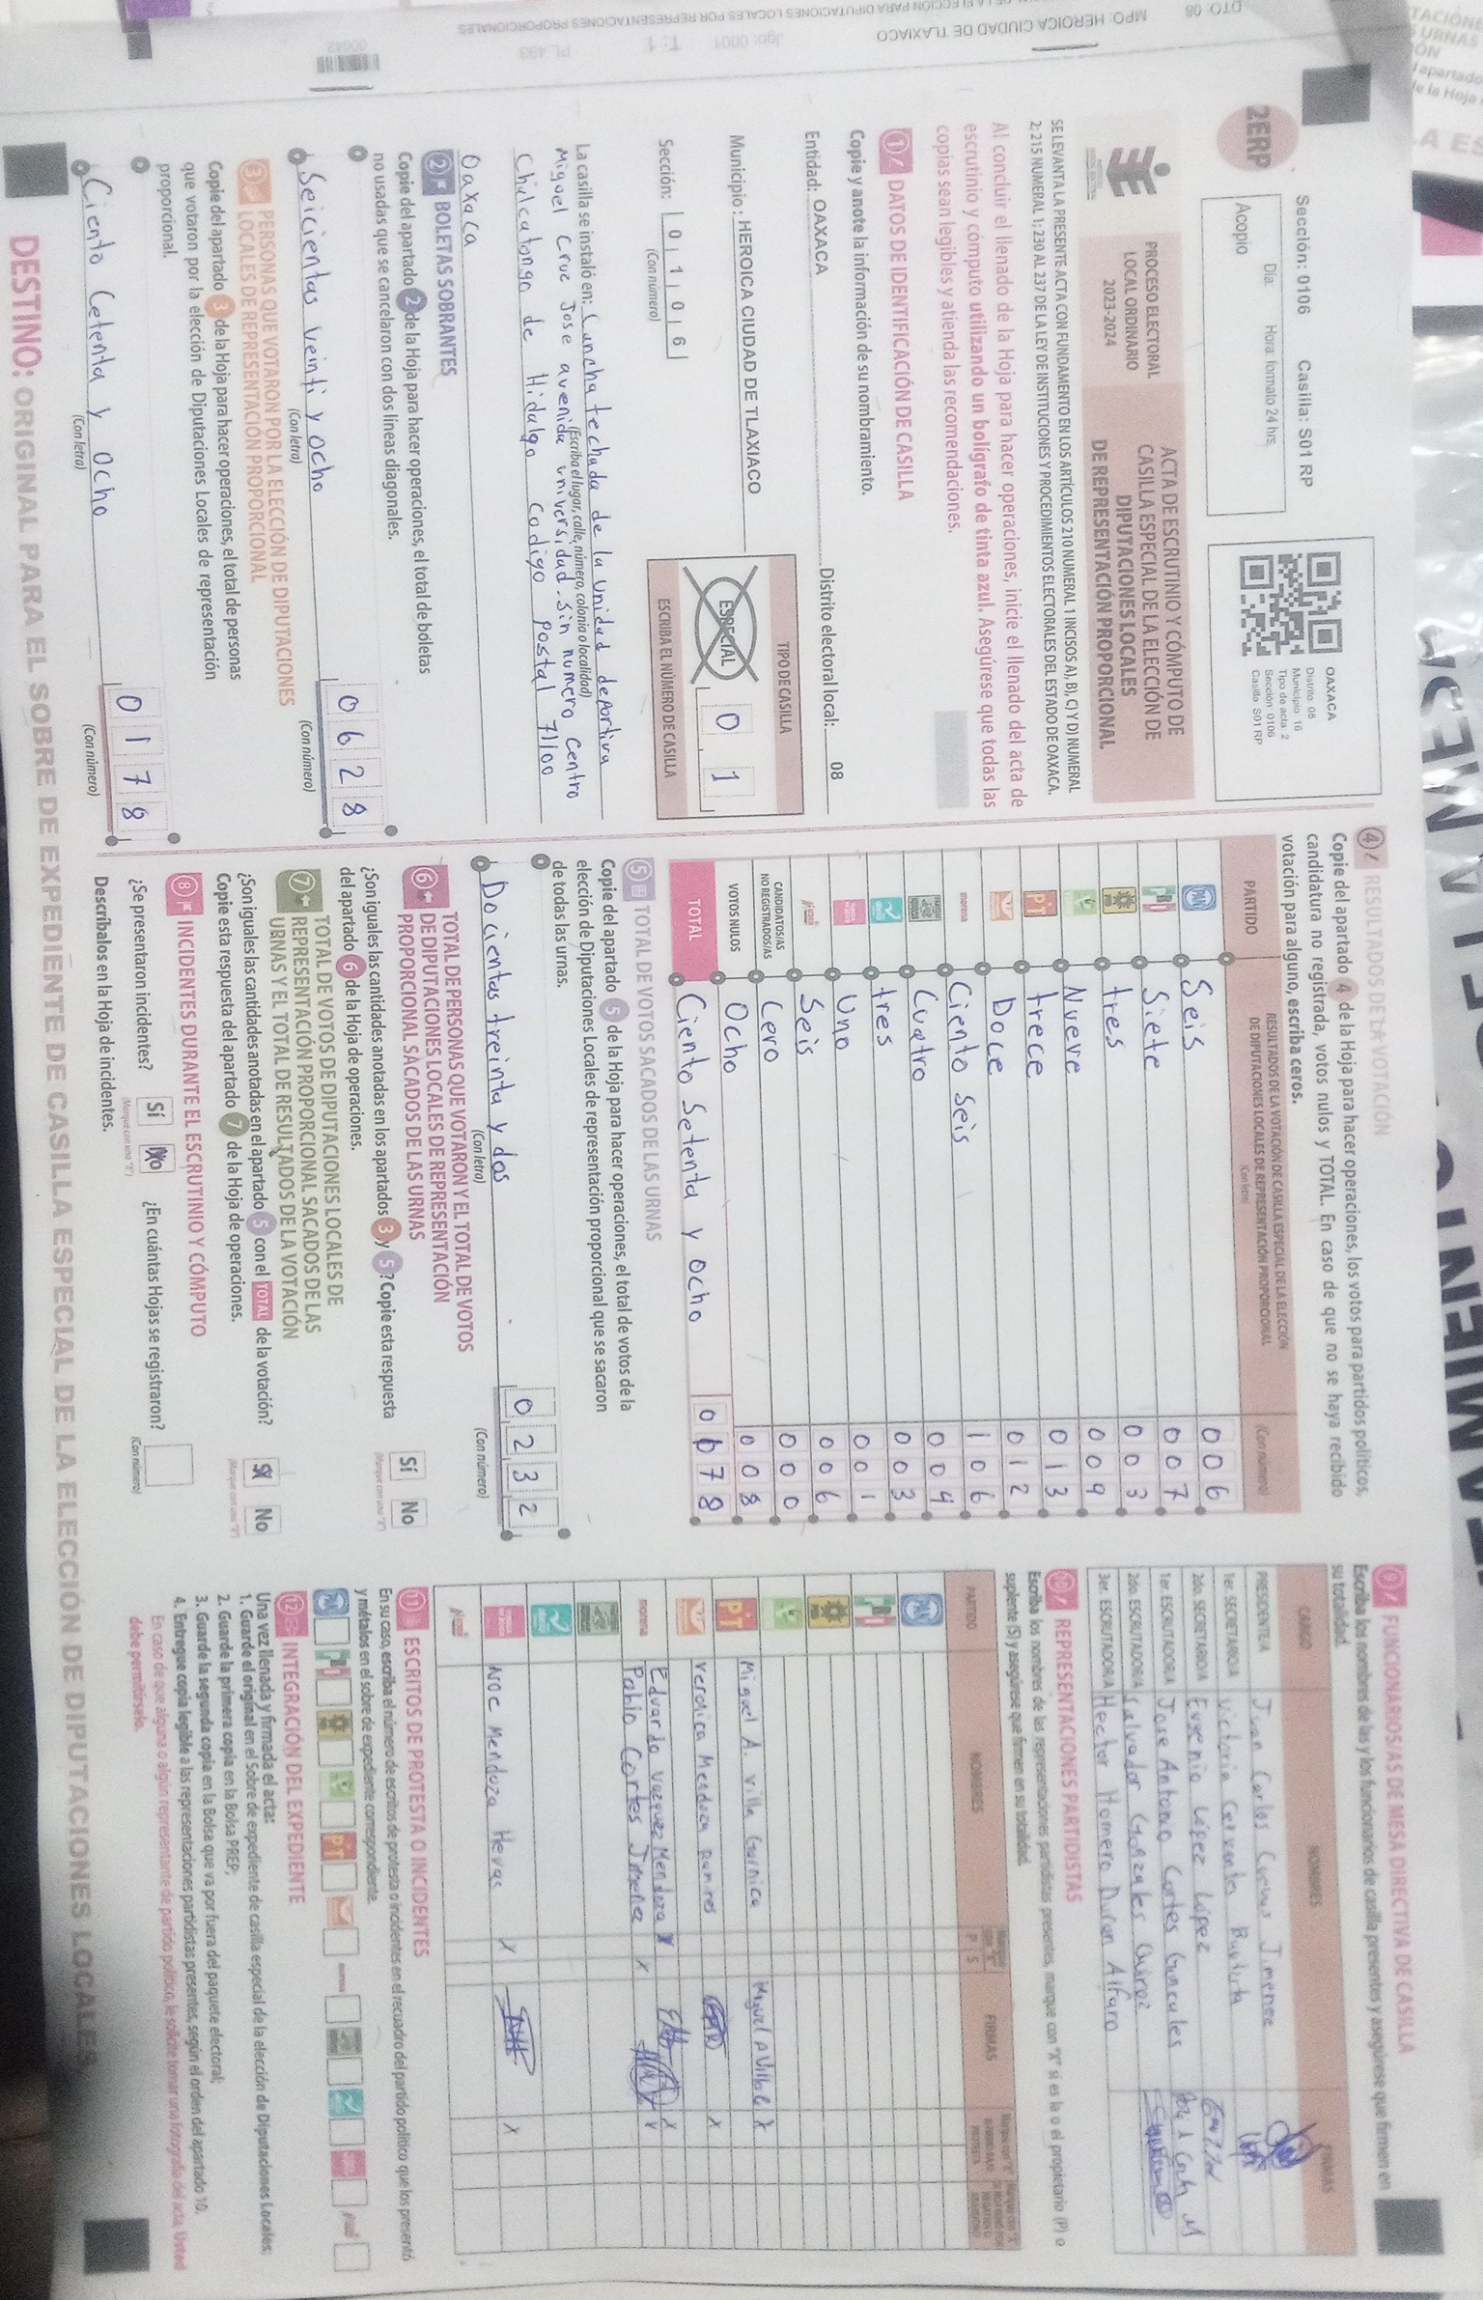 Sección: 0106 Casilla: S01 RP
2ERP
Día: Hora: formato 24 hrs.
Acopio
OAXACA
Distrito: 08
Municipio: 16
Tipo de acta: 2
Sección: 0106
Casilla: S01 RP
PROCESO ELECTORAL
LOCAL ORDINARIO
2023-2024
ACTA DE ESCRUTINIO Y CÓMPUTO DE
CASILLA ESPECIAL DE LA ELECCIÓN DE
DIPUTACIONES LOCALES
DE REPRESENTACIÓN PROPORCIONAL
SE LEVANTA LA PRESENTE ACTA CON FUNDAMENTO EN LOS ARTÍCULOS 210 NUMERAL 1 INCISOS A), B), C) Y D) NUMERAL
2; 215 NUMERAL 1; 230 AL 237 DE LA LEY DE INSTITUCIONES Y PROCEDIMIENTOS ELECTORALES DEL ESTADO DE OAXACA.
Al concluir el llenado de la Hoja para hacer operaciones, inicie el llenado del acta de
escrutinio y cómputo utilizando un bolígrafo de tinta azul. Asegúrese que todas las
copias sean legibles y atienda las recomendaciones.
1 DATOS DE IDENTIFICACIÓN DE CASILLA
Copie y anote la información de su nombramiento.
Entidad: OAXACA Distrito electoral local: 08
Municipio: HEROICA CIUDAD DE TLAXIACO
TIPO DE CASILLA
ESPECIAL 0 1
ESCRIBA EL NÚMERO DE CASILLA
Sección: 0 1 0 6
(Con número)
La casilla se instaló en: Cancha techada de la Unidad deportiva
(Escriba el lugar, calle, número, colonia o localidad)
Miguel Cruz Jose avenida universidad. sin numero centro
Chalcatongo de Hidalgo Codigo postal 71100
Oaxaca
2 BOLETAS SOBRANTES
Copie del apartado 2 de la Hoja para hacer operaciones, el total de boletas
no usadas que se cancelaron con dos líneas diagonales.
Seicientas veinti y ocho 0 6 2 8
(Con letra) (Con número)
3 PERSONAS QUE VOTARON POR LA ELECCIÓN DE DIPUTACIONES
LOCALES DE REPRESENTACIÓN PROPORCIONAL
Copie del apartado 3 de la Hoja para hacer operaciones, el total de personas
que votaron por la elección de Diputaciones Locales de representación
proporcional.
Ciento Cetenta y ocho 0 1 7 8
(Con letra) (Con número)
4 RESULTADOS DE LA VOTACIÓN
Copie del apartado 4 de la Hoja para hacer operaciones, los votos para partidos políticos,
candidatura no registrada, votos nulos y TOTAL. En caso de que no se haya recibido
votación para alguno, escriba ceros.
PARTIDO
RESULTADOS DE LA VOTACIÓN DE CASILLA ESPECIAL DE LA ELECCIÓN
DE DIPUTACIONES LOCALES DE REPRESENTACIÓN PROPORCIONAL
(Con letra) (Con número)
PAN Seis 0 0 6
PRI Siete 0 0 7
tres 0 0 3
Nueve 0 0 9
PT trece 0 1 3
Doce 0 1 2
morena Ciento seis 1 0 6
Cuatro 0 0 4
tres 0 0 3
Uno 0 0 1
Seis 0 0 6
CANDIDATOS/AS NO REGISTRADOS/AS Cero 0 0 0
VOTOS NULOS Ocho 0 0 8
TOTAL Ciento Setenta y ocho 0 1 7 8
5 TOTAL DE VOTOS SACADOS DE LAS URNAS
Copie del apartado 5 de la Hoja para hacer operaciones, el total de votos de la
elección de Diputaciones Locales de representación proporcional que se sacaron
de todas las urnas.
Docientas treinta y dos 0 2 3 2
(Con letra) (Con número)
6 TOTAL DE PERSONAS QUE VOTARON Y EL TOTAL DE VOTOS
DE DIPUTACIONES LOCALES DE REPRESENTACIÓN
PROPORCIONAL SACADOS DE LAS URNAS
¿Son iguales las cantidades anotadas en los apartados 3 y 5? Copie esta respuesta
del apartado 6 de la Hoja de operaciones.
Sí No
7 TOTAL DE VOTOS DE DIPUTACIONES LOCALES DE
REPRESENTACIÓN PROPORCIONAL SACADOS DE LAS
URNAS Y EL TOTAL DE RESULTADOS DE LA VOTACIÓN
¿Son iguales las cantidades anotadas en el apartado 5 con el TOTAL de la votación?
Copie esta respuesta del apartado 7 de la Hoja de operaciones.
Sí No
8 INCIDENTES DURANTE EL ESCRUTINIO Y CÓMPUTO
¿Se presentaron incidentes? Sí No ¿En cuántas Hojas se registraron?
(Marque con una "X") (Con número)
Descríbalos en la Hoja de incidentes.
9 FUNCIONARIOS/AS DE MESA DIRECTIVA DE CASILLA
Escriba los nombres de las y los funcionarios de casilla presentes y asegúrese que firmen en
su totalidad.
CARGO NOMBRES FIRMAS
PRESIDENTE/A Juan Carlos Cuevas Jimenez
1er. SECRETARIO/A Victoria Cervantes Bautista
2do. SECRETARIO/A Eugenio López López
1er. ESCRUTADOR/A Jose Antonio Cortes Gonzales
2do. ESCRUTADOR/A Salvador Gonzales Quiroz
3er. ESCRUTADOR/A Hector Homero Duran Alfaro
10 REPRESENTACIONES PARTIDISTAS
Escriba los nombres de las representaciones partidistas presentes, marque con "X" si es la o el propietario (P) o
suplente (S) y asegúrese que firmen en su totalidad.
PARTIDO NOMBRES P S FIRMAS
PAN
PRI
PT Miguel A. Villa Garnica Miguel A Villa G X
Veronica Mendoza Ramires X
morena Eduardo Vazquez Mendoza X X
Pablo Cortes Jimenez X
Noe Mendoza Hevas X X
11 ESCRITOS DE PROTESTA O INCIDENTES
En su caso, escriba el número de escritos de protesta o incidentes en el recuadro del partido político que los presentó
y métalos en el sobre de expediente correspondiente.
12 INTEGRACIÓN DEL EXPEDIENTE
Una vez llenada y firmada el acta:
1. Guarde el original en el Sobre de expediente de casilla especial de la elección de Diputaciones Locales;
2. Guarde la primera copia en la Bolsa PREP;
3. Guarde la segunda copia en la Bolsa que va por fuera del paquete electoral;
4. Entregue copia legible a las representaciones partidistas presentes, según el orden del apartado 10.
En caso de que alguna o algún representante de partido político, le solicite tomar una fotografía del acta, Usted
debe permitírselo.
DESTINO: ORIGINAL PARA EL SOBRE DE EXPEDIENTE DE CASILLA ESPECIAL DE LA ELECCIÓN DE DIPUTACIONES LOCALES
DTO 08 MPO: HEROICA CIUDAD DE TLAXIACO